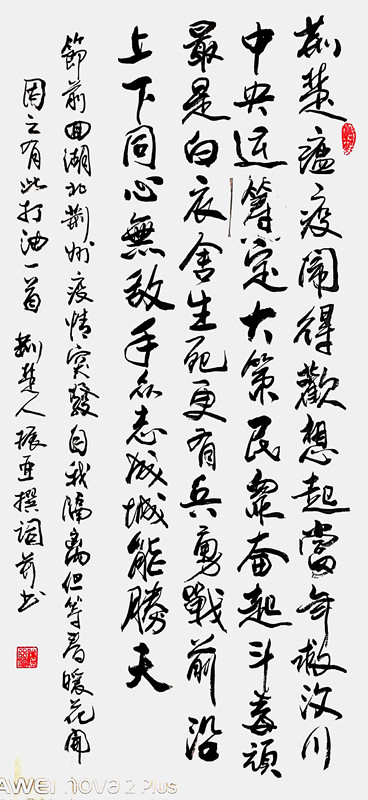 荊楚瘟疫鬧得歡想起當年救汶川
中央运籌定大策民眾奋起斗毒頑
最是白衣舍生死更有兵勇戰前沿
上下同心無敌手众志成城能勝天
節前回湖北荊州疫情突發自我隔离但等春暖花開
因之有此打油一首 荊楚人振亚撰词并书
AWEI nova 2 Plus